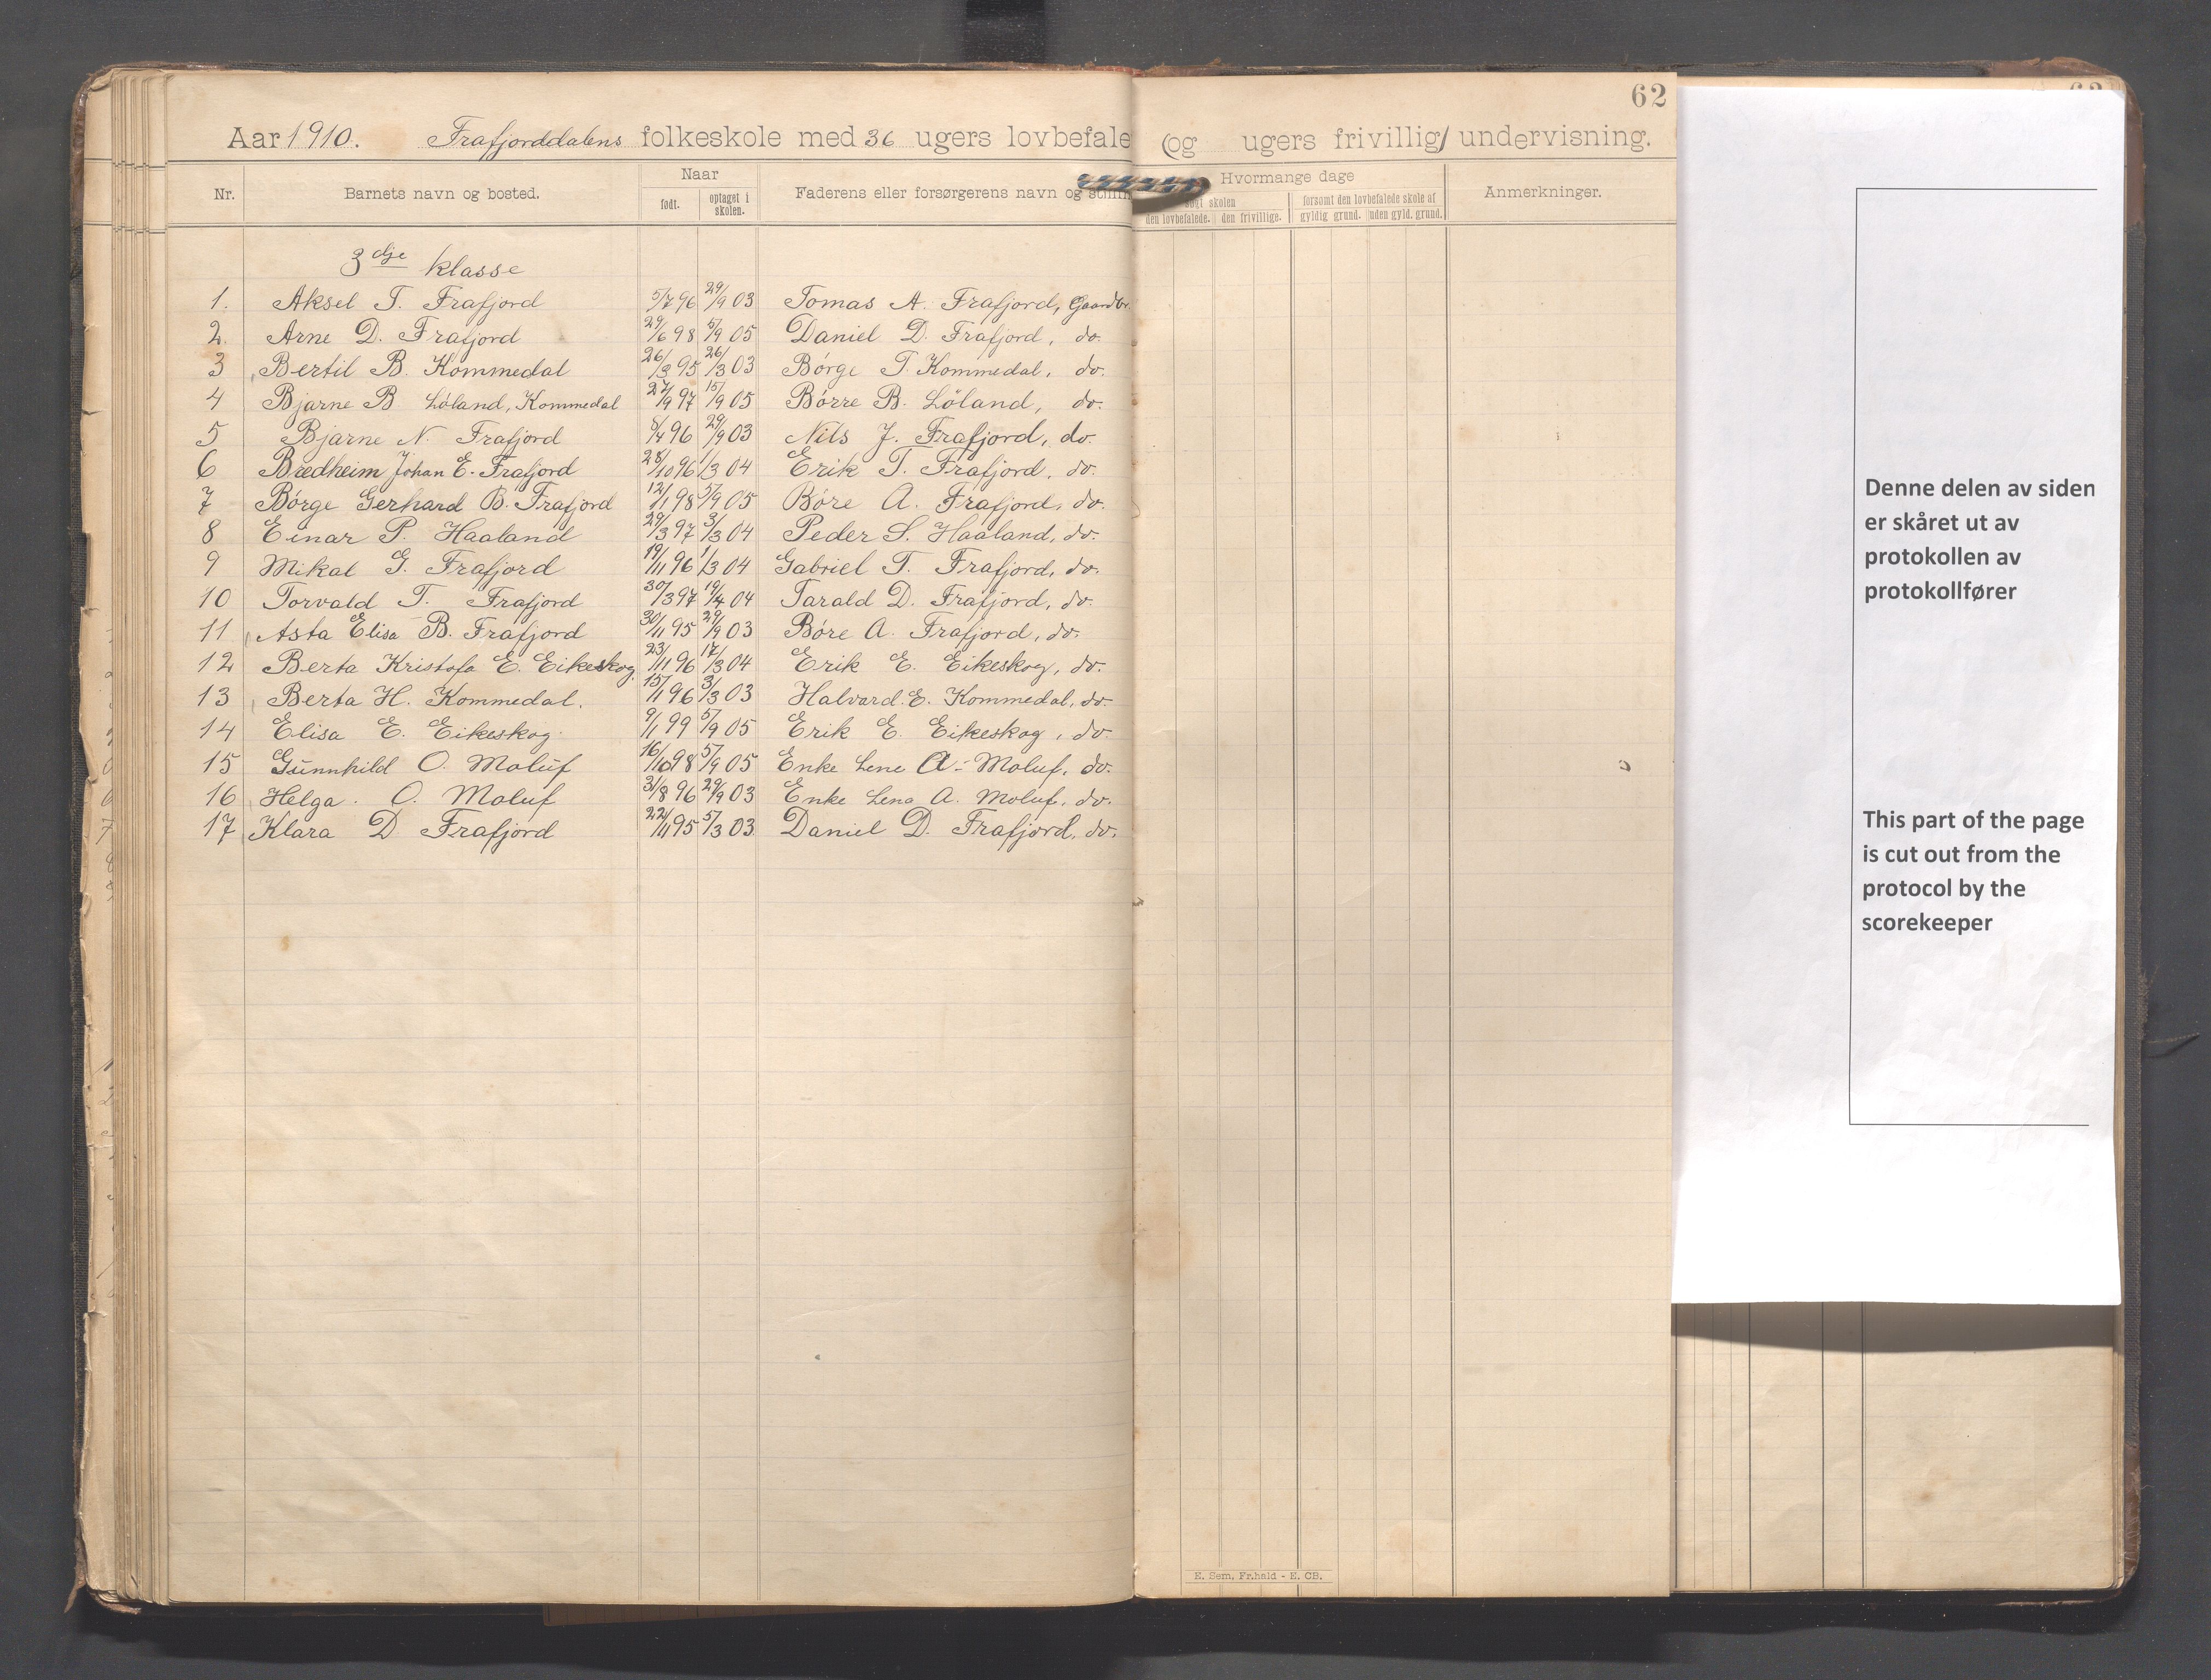 62
Aar 1910. Frafjorddalens folkeskole med 36 ugers lovbefale (og ugers frivillig) undervisning.
Nr. Barnets navn og bosted. Naar født. optaget i skolen. Faderens eller forsørgerens navn og Hvormange dage søgt skolen den lovbefalede. den frivillige. forsømt den lovbefalede skole af gyldig grund. uden gyld. grund. Anmerkninger.
3dje klasse
1. Aksel T. Frafjord 5/7 96 29/9 03 Tomas A. Frafjord, Gaardbr.
2. Arne D. Frafjord 29/6 98 5/9 05 Daniel D. Frafjord, do.
3 Bertil B. Kommedal 26/3 95 26/3 03 Börge T. Kommedal, do.
4 Bjarne B Löland, Kommedal 27/9 97 15/9 05 Börre B. Löland, do.
5 Bjarne N. Frafjord 8/4 96 29/9 03 Nils J. Frafjord, do.
6 Bredheim Johan E. Frafjord 28/10 96 1/3 04 Erik T. Frafjord, do.
7 Börge Gerhard B. Frafjord 12/1 98 5/9 05 Böre A. Frafjord, do.
8 Einar P. Haaland 29/3 97 3/3 04 Peder S. Haaland, do.
9 Mikal G. Frafjord 19/11 96 1/3 04 Gabriel T. Frafjord, do.
10 Torvald T. Frafjord 30/3 97 19/4 04 Tarald D. Frafjord, do.
11 Asta Elisa B. Frafjord 30/11 95 29/9 03 Böre A. Frafjord, do.
12 Berta Kristofa E. Eikeskog. 23/11 96 17/3 04 Erik E. Eikeskog, do.
13 Berta H. Kommedal. 15/1 96 3/3 03 Halvard. E. Kommedal, do.
14 Elisa E. Eikeskog. 9/1 99 5/9 05 Erik E. Eikeskog, do.
15 Gunnhild O. Moluf 16/10 98 5/9 05 Enke Lene A. Moluf, do.
16 Helga. O. Moluf 31/8 96 29/9 03 Enke Lena A. Moluf, do.
17 Klara D Frafjord 22/11 95 5/3 03 Daniel D. Frafjord, do.
E. Sem, Fr.hald - E. CB.
Denne delen av siden
er skåret ut av
protokollen av
protokollfører
This part of the page
is cut out from the
protocol by the
scorekeeper